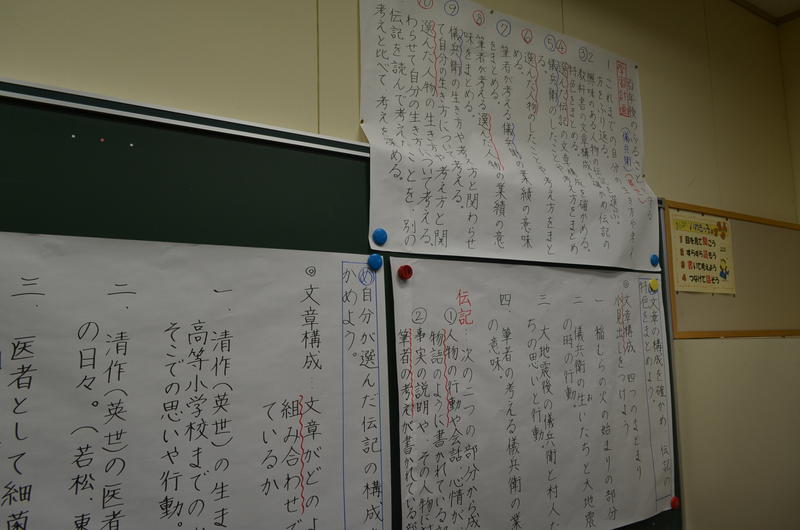 百年後のふるさとを守る
学習計画
儀兵衛
1 これまでの自分の生き方や考え
方をふり返る。
2 興味のある人物の伝記を選ぶ。
③ 教科書の文章構成を確かめ、伝記の
特色をまとめる。
④ 選んだ伝記の文章構成を確かめる。
⑤ 儀兵衛のしたことや考え方をまと
める。
⑥ 選んだ人物のしたことや考え方をまと
める。
⑦ 筆者が考える儀兵衛の業績の意味
をまとめる。
⑧ 筆者が考える選んだ人物の業績の意
味をまとめる。
⑨ 儀兵衛の生き方や考え方と関わらせ
て自分の生き方について考える。
⑩ 選んだ人物の生き方や考え方と関
わらせて自分の生き方について考える。
伝記を読んで考えたことを、別の
考えと比べて、考えを深める。
文章の構成を確かめ、伝記の
特色をまとめよう。
◎文章構成…四つのまとまり
小見出しをつけよう
一 稲むらの火の始まりの部分
二 儀兵衛の生いたちと大地震
の時の行動。
三 大地震後の儀兵衛と村人た
ちの思いと行動。
四、筆者の考える儀兵衛の業
の意味。
伝記…次の二つの部分から成
① 人物の行動や会話、心情が、
物語のように書かれている
② 事実の説明や、その人物
筆者の考えが書かれている
め 自分が選んだ伝記の構成
かめよう。
◎文章構成…文章がどのよ
組み合わせで
ているか
一、清作(英世)の生ま
高等小学校までの
そこでの思いや行動。
二、清作(英世)の医者
の日々。(若松、東
三、医者として細菌
1 目を見て聞こう
2 はきはき話そう
3 書いて考えよう
4 つなげて話そう